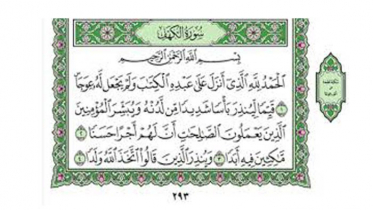 سُورَةُ الْكَهْفِ
بِسْمِ اللَّهِ الرَّحْمَٰنِ الرَّحِيمِ
الْحَمْدُ لِلَّهِ الَّذِي أَنزَلَ عَلَىٰ عَبْدِهِ الْكِتَٰبَ وَلَمْ يَجْعَل لَّهُ عِوَجَا
١ قَيِّمًا لِّيُنذِرَ بَأْسًا شَدِيدًا مِّن لَّدُنْهُ وَيُبَشِّرَ الْمُؤْمِنِينَ
الَّذِينَ يَعْمَلُونَ الصَّٰلِحَٰتِ أَنَّ لَهُمْ أَجْرًا حَسَنًا ٢
مَّٰكِثِينَ فِيهِ أَبَدًا ٣ وَيُنذِرَ الَّذِينَ قَالُوا اتَّخَذَ اللَّهُ وَلَدًا ٤
٢٩٣